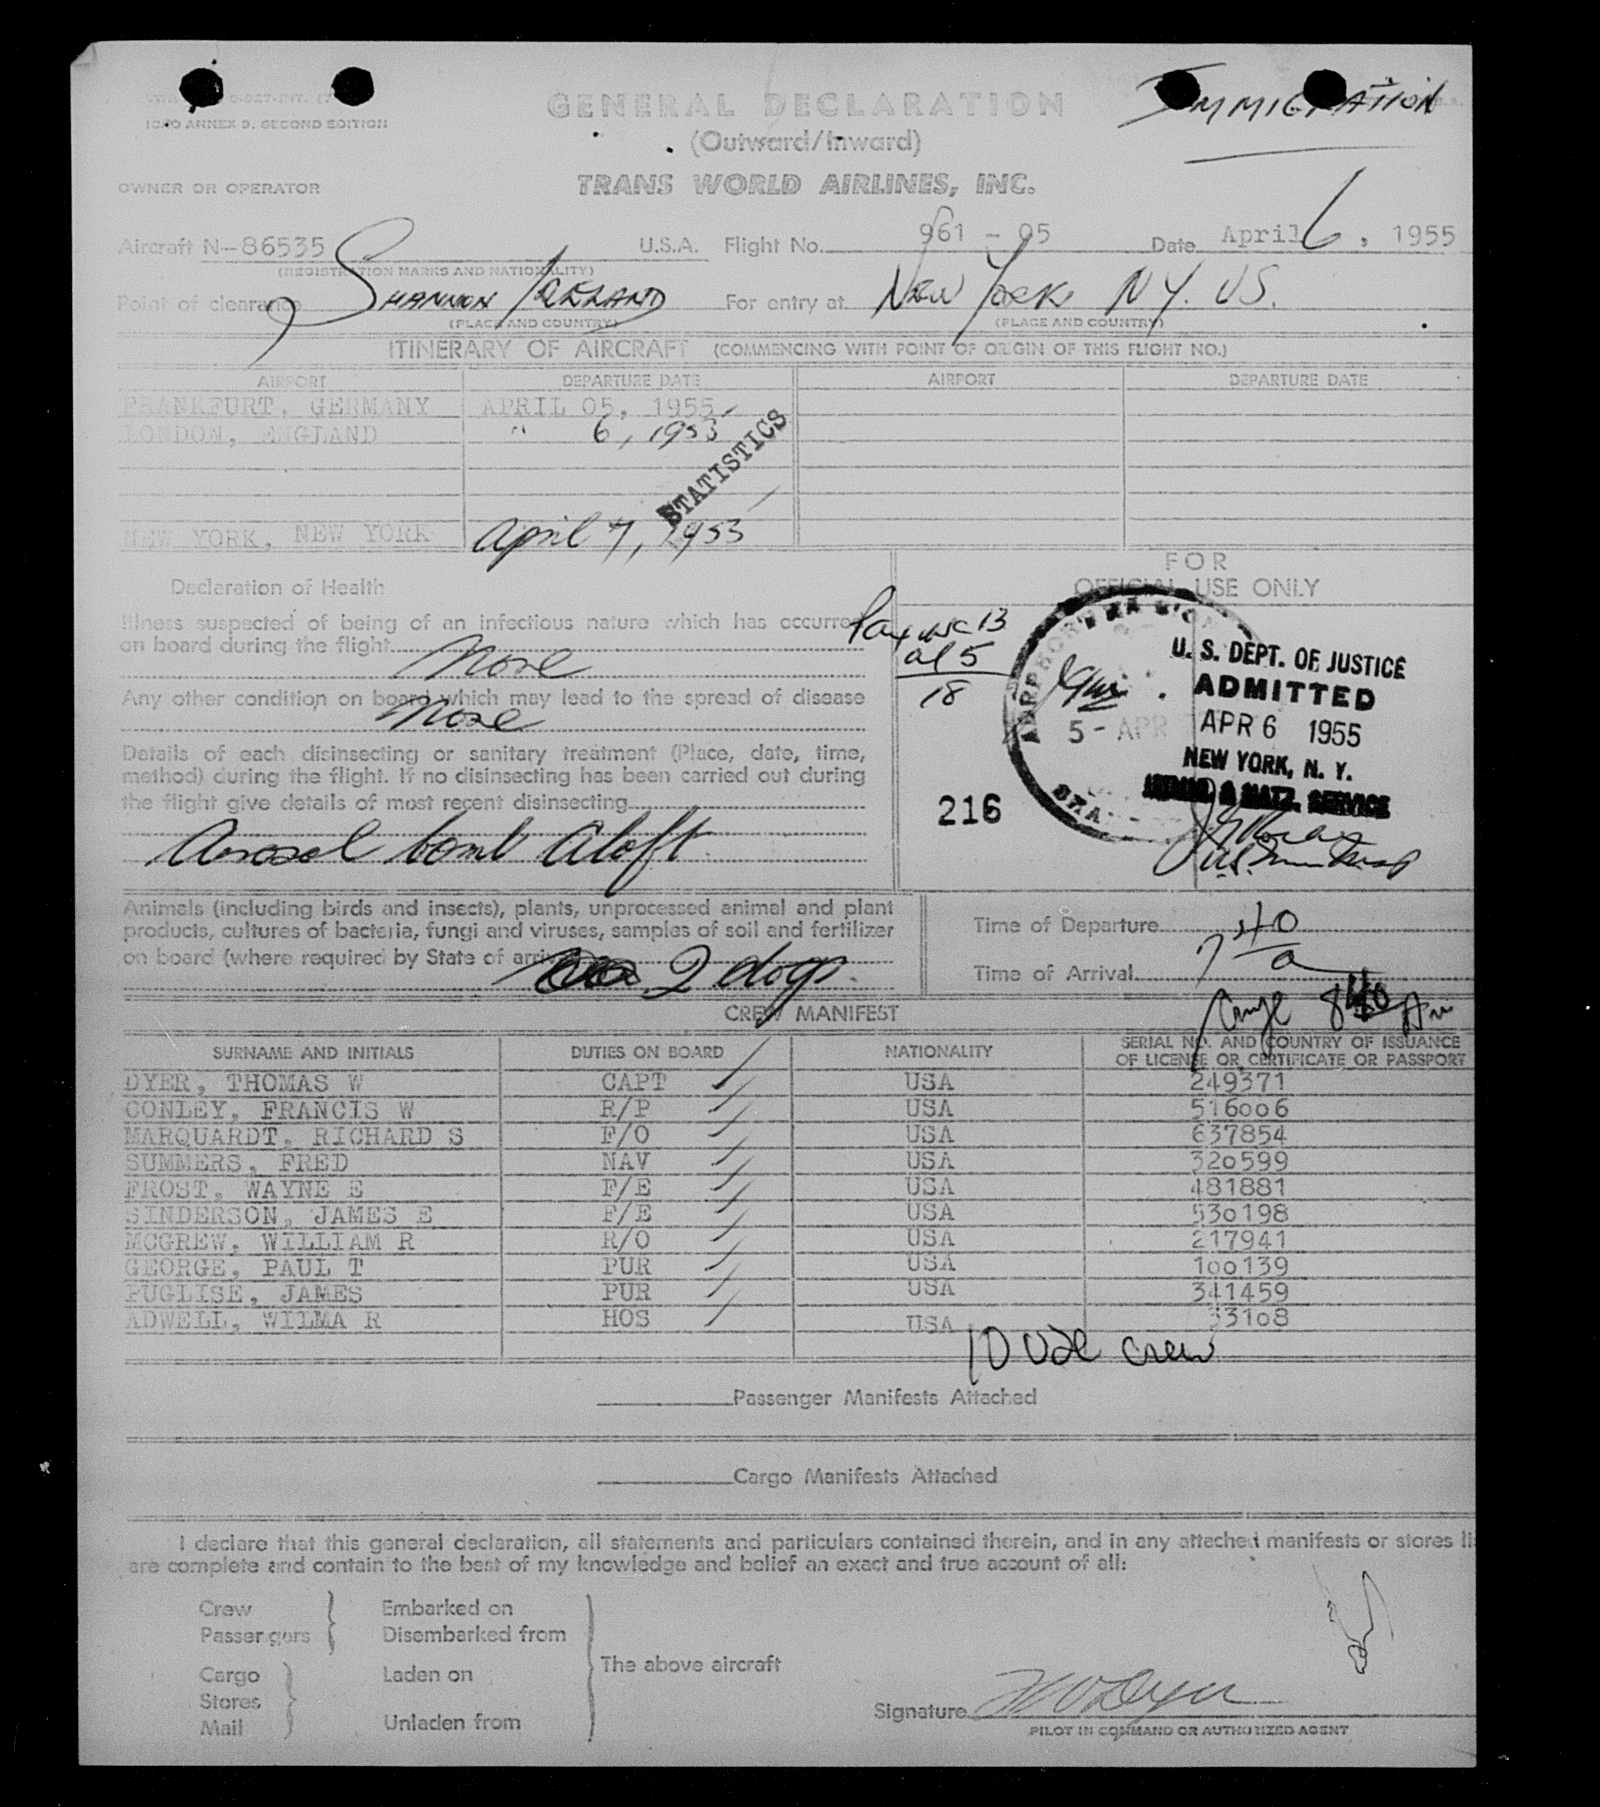 ICAO ANNEX 9, SECOND EDITION
GENERAL DECLARATION
(Outward/Inward)
IMMIGRATION
OWNER OR OPERATOR
TRANS WORLD AIRLINES, INC.
Aircraft N-86535 U.S.A. Flight No. 961 - 05 Date April 6, 1955
(REGISTRATION MARKS AND NATIONALITY)
Point of clearance SHANNON IRELAND For entry at NEW YORK NY. US.
(PLACE AND COUNTRY) (PLACE AND COUNTRY)
ITINERARY OF AIRCRAFT (COMMENCING WITH POINT OF ORIGIN OF THIS FLIGHT NO.)
AIRPORT DEPARTURE DATE AIRPORT DEPARTURE DATE
FRANKFURT, GERMANY APRIL 05, 1955
LONDON, ENGLAND " 6, 1953
STATISTICS
NEW YORK, NEW YORK April 7, 1953
FOR
OFFICIAL USE ONLY
Declaration of Health
Illness suspected of being of an infectious nature which has occurred
on board during the flight
None
Any other condition on board which may lead to the spread of disease
None
Details of each disinsecting or sanitary treatment (Place, date, time,
method) during the flight. If no disinsecting has been carried out during
the flight give details of most recent disinsecting
Aerosol bomb Aloft
Pax usc 13
al 5
18
5 - APR
216
U. S. DEPT. OF JUSTICE
ADMITTED
APR 6 1955
NEW YORK, N. Y.
IMMIG. & NATZ. SERVICE
Animals (including birds and insects), plants, unprocessed animal and plant
products, cultures of bacteria, fungi and viruses, samples of soil and fertilizer
on board (where required by State of arrival)
2 dogs
Time of Departure
Time of Arrival 7 40 a
840 Am
CREW MANIFEST
SURNAME AND INITIALS DUTIES ON BOARD NATIONALITY SERIAL NO. AND COUNTRY OF ISSUANCE
OF LICENSE OR CERTIFICATE OR PASSPORT
DYER, THOMAS W CAPT USA 249371
CONLEY, FRANCIS W R/P USA 516006
MARQUARDT, RICHARD S F/O USA 637854
SUMMERS, FRED NAV USA 320599
FROST, WAYNE E F/E USA 481881
SINDERSON, JAMES E F/E USA 530198
MCGREW, WILLIAM R R/O USA 217941
GEORGE, PAUL T PUR USA 100139
PUGLISE, JAMES PUR USA 341459
ADWELL, WILMA R HOS USA 33108
10 USC crew
Passenger Manifests Attached
Cargo Manifests Attached
I declare that this general declaration, all statements and particulars contained therein, and in any attached manifests or stores li
are complete and contain to the best of my knowledge and belief an exact and true account of all:
Crew Embarked on
Passengers Disembarked from
The above aircraft
Cargo Laden on
Stores
Mail Unladen from
Signature
PILOT IN COMMAND OR AUTHORIZED AGENT